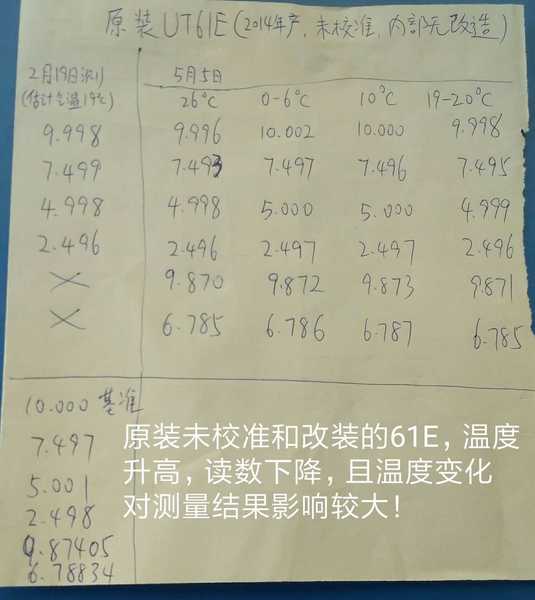 原装UT61E(2014年产,未校准,内部无改造)
2月19日测
(估计室温19℃)
5月5日
26℃ 0-6℃ 10℃ 19-20℃
9.998 9.996 10.002 10.000 9.998
7.499 7.493 7.497 7.496 7.495
4.998 4.998 5.000 5.000 4.999
2.496 2.496 2.497 2.497 2.496
× 9.870 9.872 9.873 9.871
× 6.785 6.786 6.787 6.785
10.000 基准
7.497
5.001
2.498
9.87405
6.78834
原装未校准和改装的61E,温度
升高,读数下降,且温度变化
对测量结果影响较大!